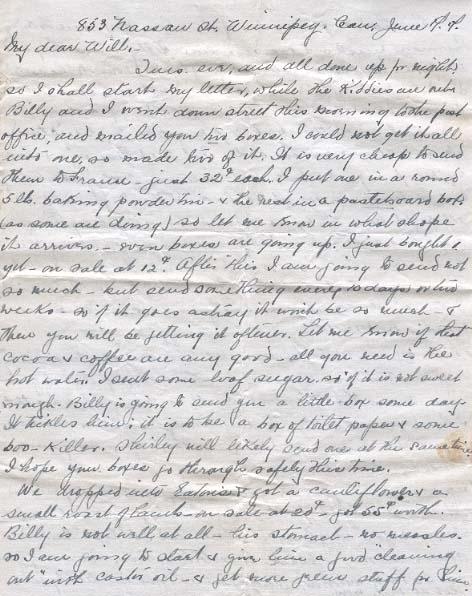 853 Nassau St. Winnipeg. Can. June
My dear Will,-
Tues. eve, and all done up for night,
so I shall start my letter, while the Kiddies are
Billy and I went down street this morning to the post
office, and mailed your two boxes. I could not get it all
into one, so made two of it. It is very cheap to send
them to France - just 32¢ each. I put one in a round
5 lb. baking powder tin - & the rest in a pasteboard box
(as some are doing) so let me know in what shape
it arrives. - even boxes are going up. I just bought
yet - on sale at 12¢. After this I am going to send not
so much - but send something every 10 days or two
weeks - so if it goes astray it wont be so much - &
then you will be getting it oftener. Let me know if that
cocoa & coffee are any good - all you need is the
hot water. I sent some loaf sugar. so if it is not sweet
enough. Billy is going to send you a little box some day.
It tickles him, it is to be a box of toilet paper & some
boo-killer. Shirley will likely send one at the same time
I hope your boxes go through safely this time.
We dropped into Eatons & got a cauliflower & a
small roast of lamb - on sale at 20¢ - got 55¢ worth.
Billy is not well at all - his stomach - no measles.
so I am going to start & give him a good "cleaning
out" with castor oil - & get more green stuff for him